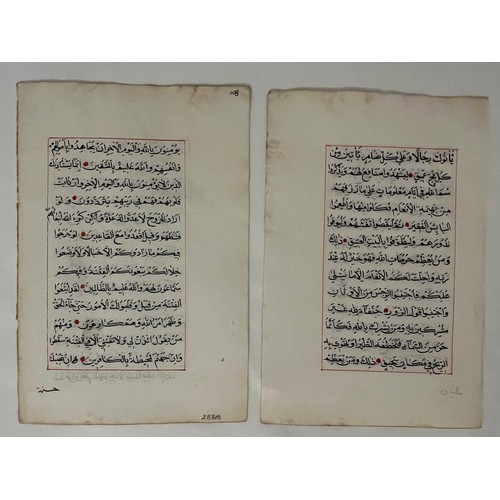 يأتوك رجالا وعلى كل ضامر يأتين من
كل فج عميق ليشهدوا منافع لهم ويذكروا
اسم الله في أيام معلومات على ما رزقهم
من بهيمة الأنعام فكلوا منها وأطعموا
البائس الفقير ثم ليقضوا تفثهم وليوفوا
نذورهم وليطوفوا بالبيت العتيق ذلك
ومن يعظم حرمات الله فهو خير له عند
ربه وأحلت لكم الأنعام إلا ما يتلى
عليكم فاجتنبوا الرجس من الأوثان
واجتنبوا قول الزور حنفاء لله غير
مشركين به ومن يشرك بالله فكأنما
خر من السماء فتخطفه الطير أو تهوي به
الريح في مكان سحيق ذلك ومن يعظم
يؤمنون بالله واليوم الآخر أن يجاهدوا بأموالهم
وأنفسهم والله عليم بالمتقين إنما يستأذنك
الذين لا يؤمنون بالله واليوم الآخر وارتابت
قلوبهم فهم في ريبهم يترددون ولو
أرادوا الخروج لأعدوا له عدة ولكن كره الله انبعاثهم
فثبطهم وقيل اقعدوا مع القاعدين لو خرجوا
فيكم ما زادوكم إلا خبالا ولأوضعوا
خلالكم يبغونكم الفتنة وفيكم
سماعون لهم والله عليم بالظالمين لقد ابتغوا
الفتنة من قبل وقلبوا لك الأمور حتى جاء الحق
وظهر أمر الله وهم كارهون ومنهم
من يقول ائذن لي ولا تفتني ألا في الفتنة سقطوا
وإن جهنم لمحيطة بالكافرين إن تصبك
حسنة